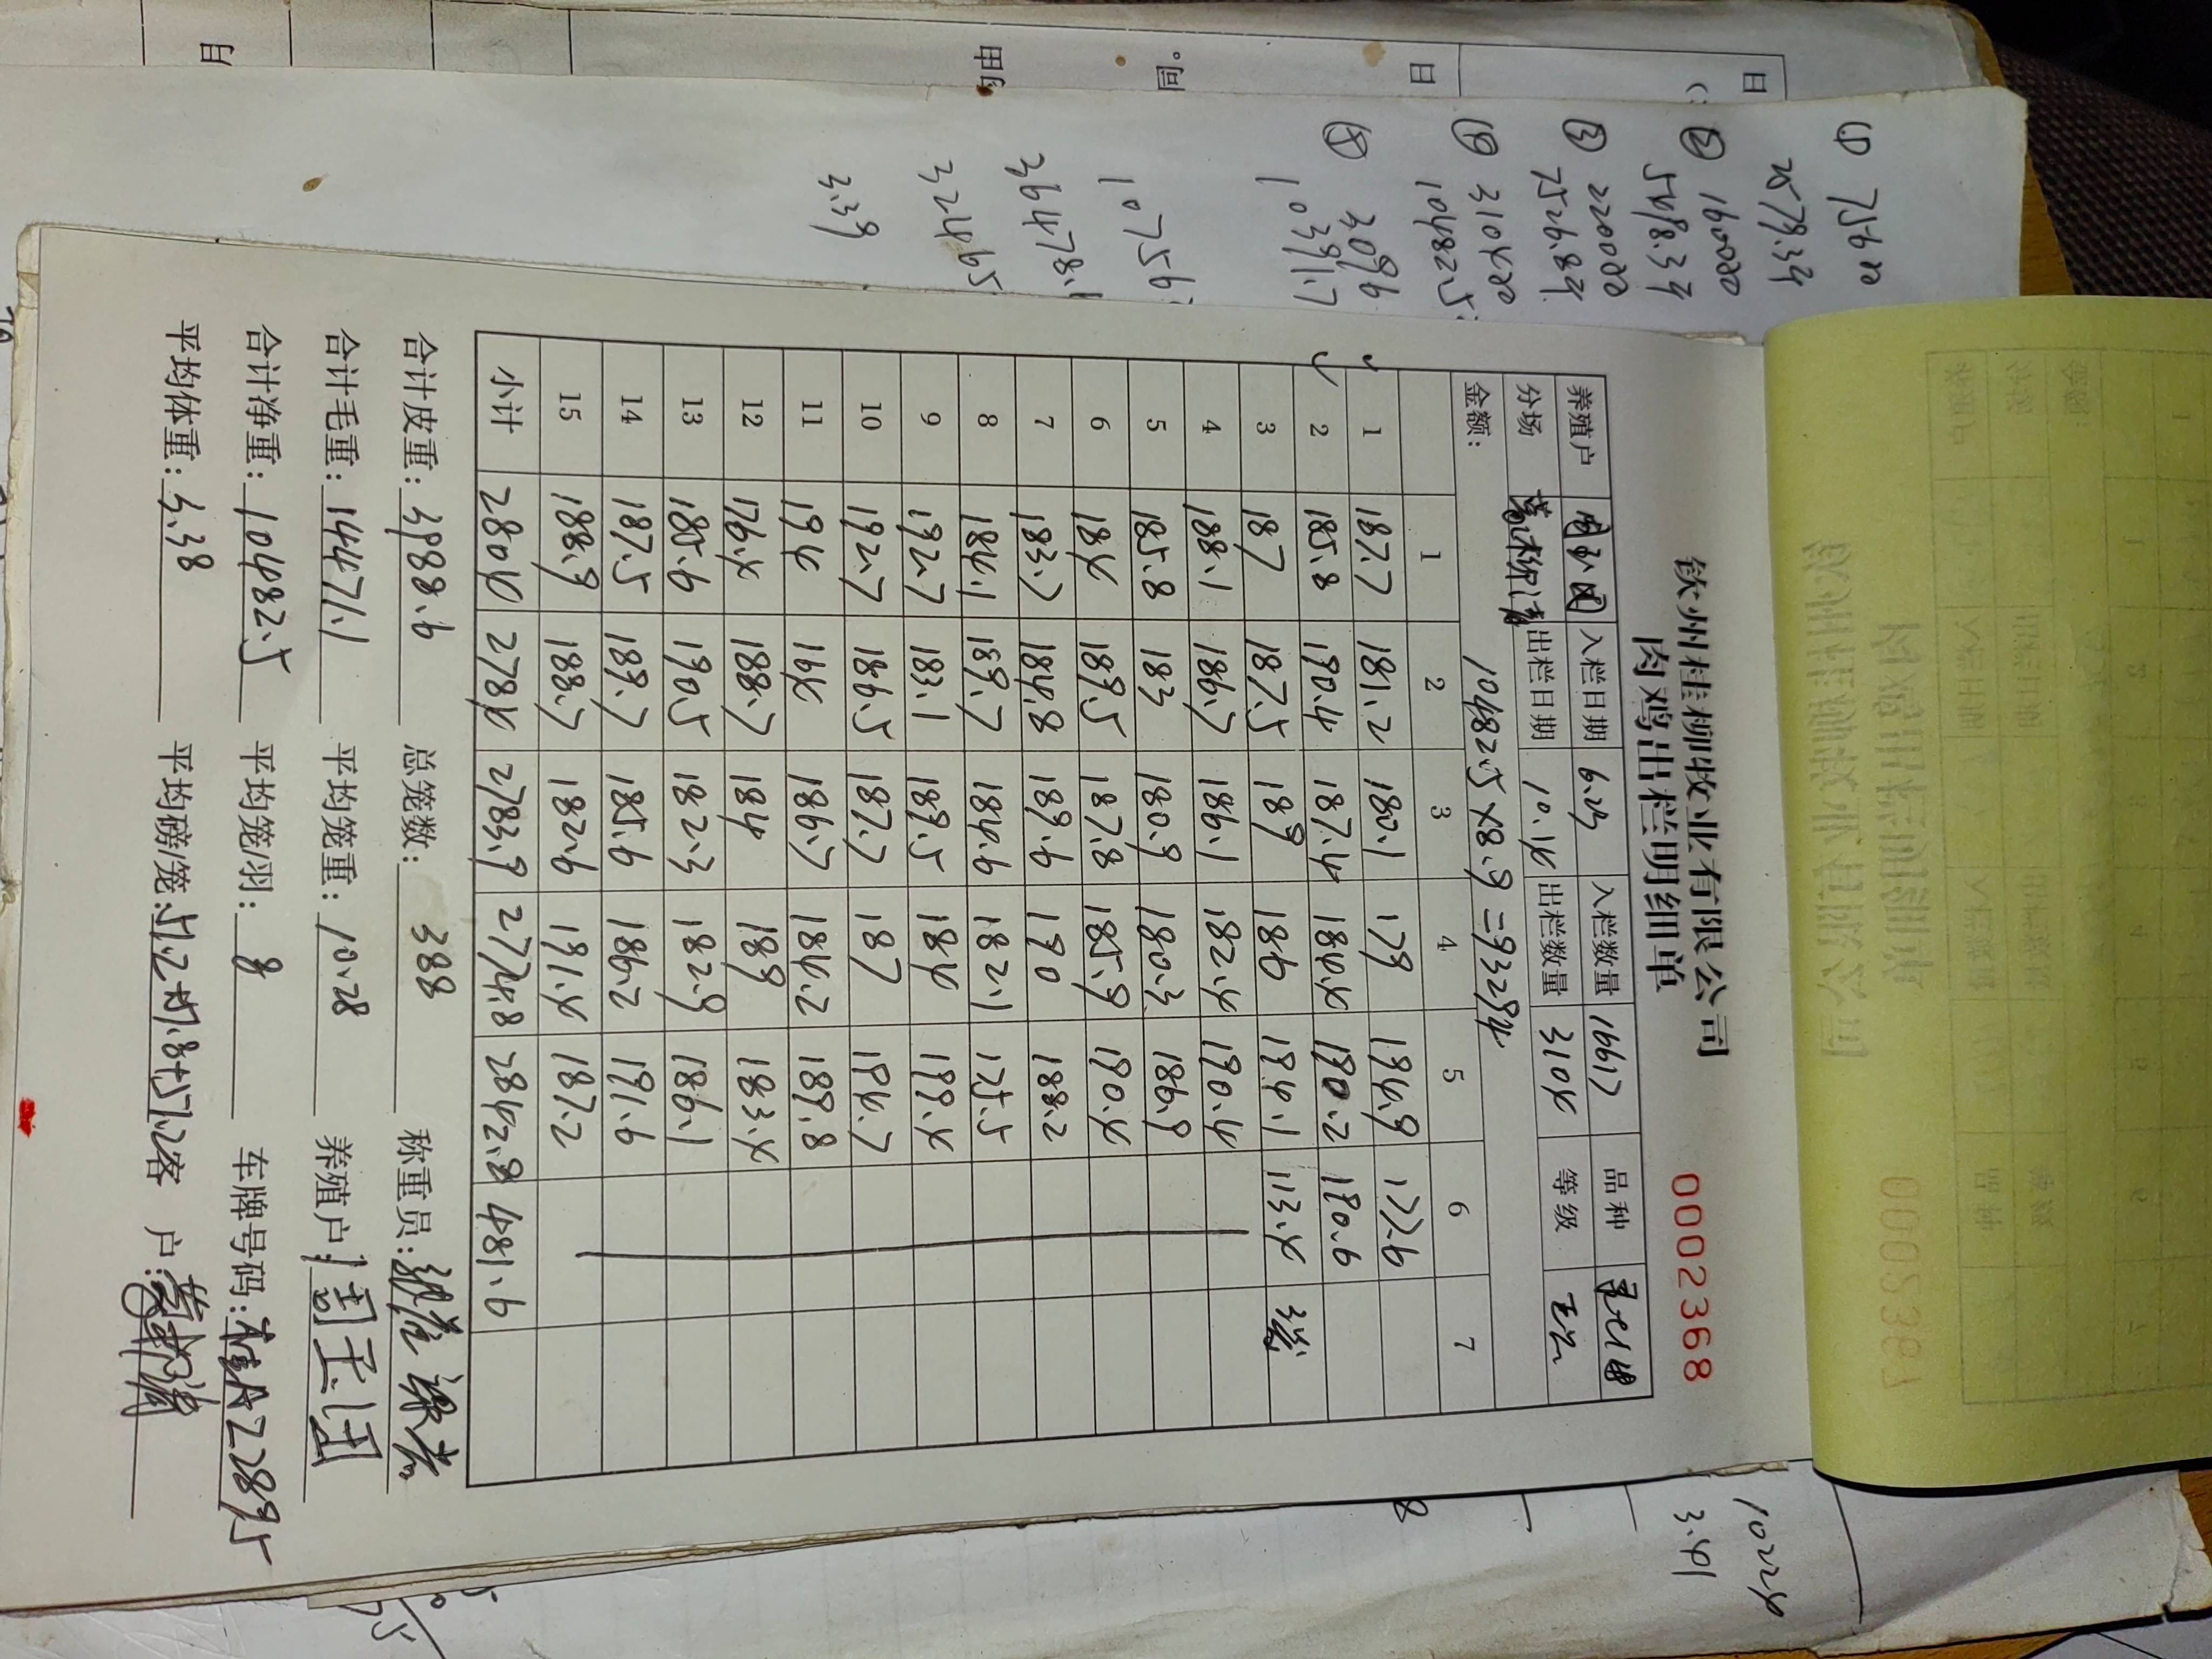 钦州桂柳牧业有限公司
肉鸡出栏明细单
0002368
养殖户 入栏日期 入栏数量 16617 品种
分场 出栏日期 10.14 出栏数量 3104 等级
金额: 10482.5×8.9=93294
1 2 3 4 5 6 7
1 187.7 181.2 180.1 179 194.9 177.6
2 185.8 190.4 187.4 184.4 190.2 190.6
3 187 187.5 189 186 194.1 113.4
4 188.1 186.7 186.1 182.4 190.4
5 185.8 183 180.9 180.3 186.9
6 184 189.5 187.8 185.9 190.4
7 183.7 184.8 189.6 190 188.2
8 184.1 189.7 184.6 182.1 175.5
9 192.7 183.1 189.5 184 199.4
10 192.7 186.5 187.7 187 194.7
11 194 164 186.7 184.2 189.8
12 176.4 188.7 184 189 183.4
13 185.6 190.5 182.3 182.9 186.1
14 187.5 189.7 185.6 186.2 191.6
15 188.9 188.7 182.6 191.4 187.2
小计 2804 2784 2783.9 2774.8 2842.8 481.6
合计皮重: 3988.6 总笼数: 388 称重员:
合计毛重: 14471.1 平均笼重: 10.28 养殖户
合计净重: 10482.5 平均笼/羽: 8 车牌号码: 桂A22895
平均体重: 3.38 平均磅笼: 51.2+51.8+51.2 客户:
月
同。
日
日
① 75600
2579.34
② 160000
5458.34
③ 220000
7526.84
④ 310400
10482.5
⑤ 3096
10391.7
3.39
10225
3.41